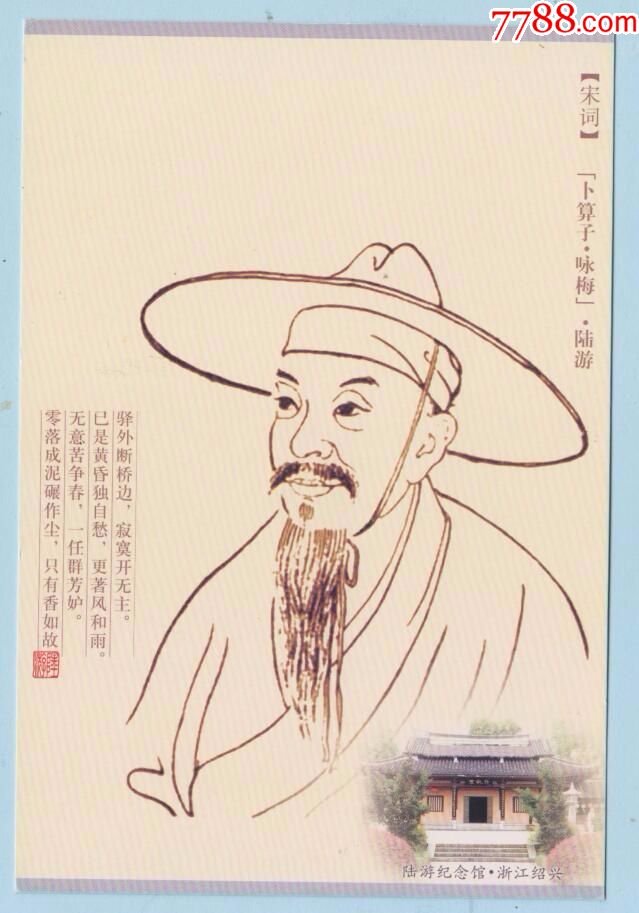 7788.com
【宋词】 「卜算子·咏梅」·陆游
驿外断桥边，寂寞开无主。
已是黄昏独自愁，更著风和雨。
无意苦争春，一任群芳妒。
零落成泥碾作尘，只有香如故
陆游纪念馆·浙江绍兴